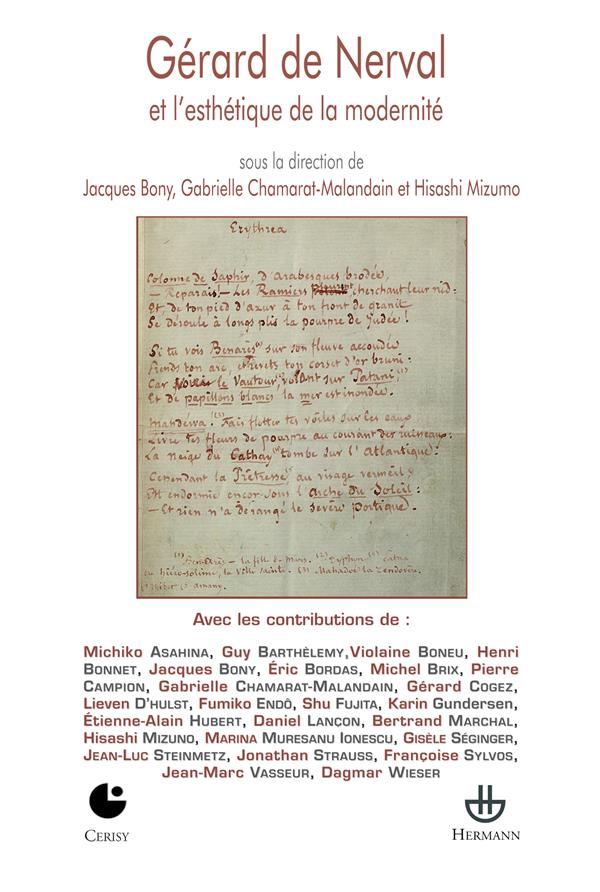 Gérard de Nerval
et l'esthétique de la modernité
sous la direction de
Jacques Bony, Gabrielle Chamarat-Malandain et Hisashi Mizumo
Erythrea
Colonne de Saphir, d'arabesques brodée,
– Reparais! – Les Ramiers cherchant leur nid :
Et, de ton pied d'azur à ton front de granit
Se déroule à longs plis la pourpre de Judée !
Si tu vois Benarès sur son fleuve accoudée
Prends ton arc, et revets ton corset d'or bruni :
Car le Vautour, volant sur Patani,
Et de papillons blancs la mer est inondée.
Mahdéwa ! Fais flotter tes voiles sur les eaux
Livre tes fleurs de pourpre au courant des ruisseaux :
La neige du Cathay tombe sur l'Atlantique :
Cependant la Prêtresse au visage vermeil
Est endormie encor sous l'Arche du Soleil :
– Et rien n'a dérangé le sévère portique.
(1) Benarès – la fille de Mars. (2) Typhon
la Ville sainte. (3) Mahadoé la Zendovère
Avec les contributions de :
Michiko ASAHINA, Guy BARTHÈLEMY,Violaine BONEU, Henri
BONNET, Jacques BONY, Éric BORDAS, Michel BRIX, Pierre
CAMPION, Gabrielle CHAMARAT-MALANDAIN, Gérard COGEZ,
Lieven D'HULST, Fumiko ENDÔ, Shu FUJITA, Karin GUNDERSEN,
Étienne-Alain HUBERT, Daniel LANÇON, Bertrand MARCHAL,
Hisashi MIZUNO, MARINA MURESANU IONESCU, GISÈLE SÉGINGER,
JEAN-LUC STEINMETZ, Jonathan STRAUSS, Françoise SYLVOS,
Jean-Marc VASSEUR, Dagmar WIESER
CERISY
HERMANN